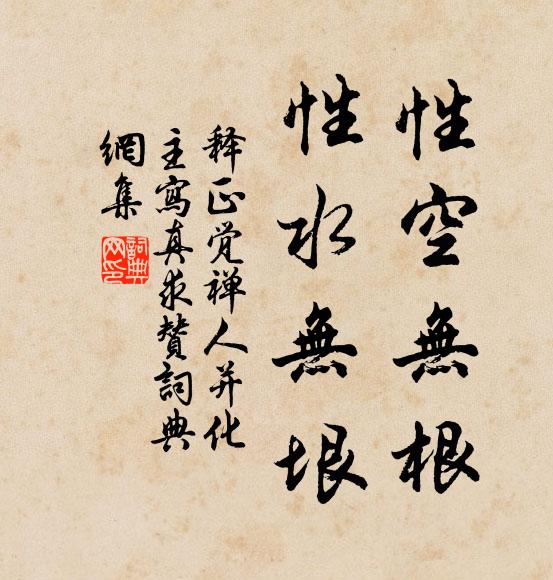 性空無根
性水無垠
释正觉禅人并化
主寫真求赞詞典
網集
詞典
网印